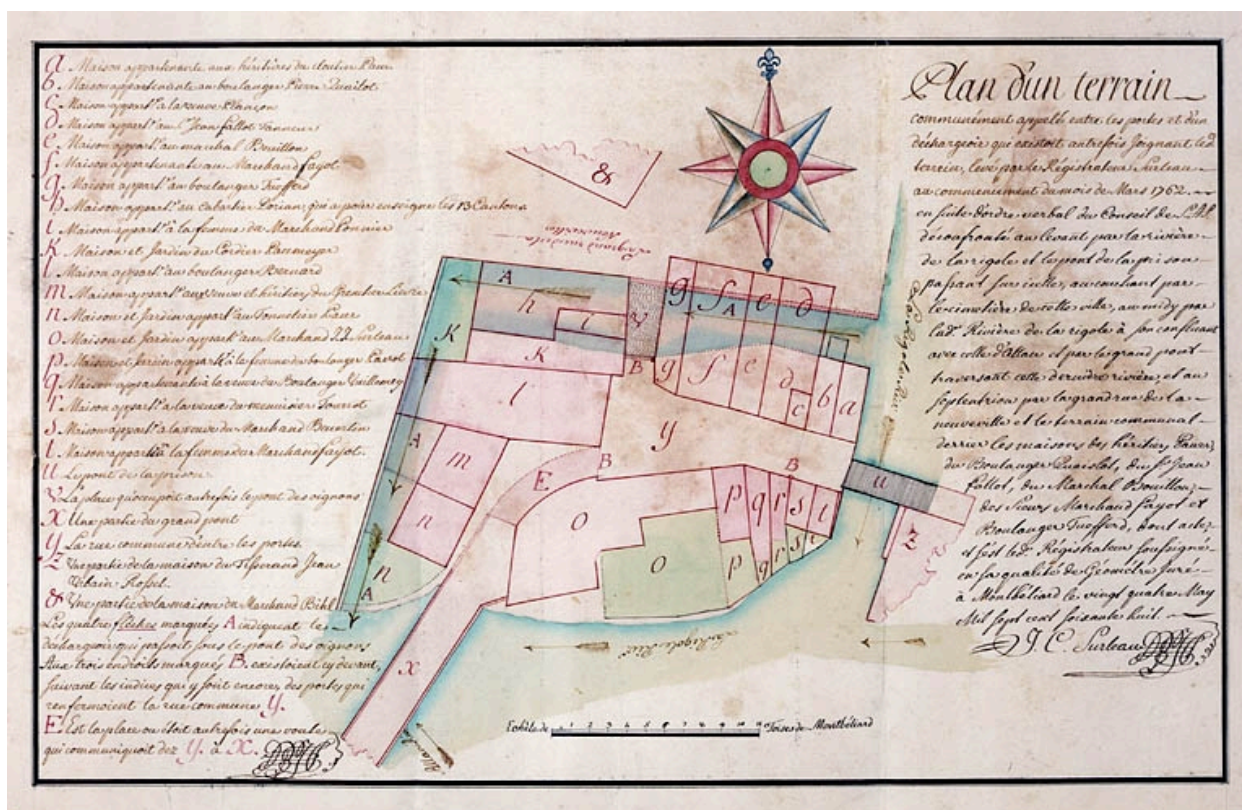 a Maison appartenante aux héritiers du cloutier
b Maison appartenante au boulanger Pierre Quailot
c Maison appart.te à la veuve Plançon
d Maison appart.te au S.r Jean Fallot Tanneur
e Maison appart.te au marchal Bouillon
f Maison appartenante au Marchand Fayot
g Maison appart.te au boulanger Tuefferd
h Maison appart.te au Cabartier Lorian, qui a pour enseigne les 13 Cantons
i Maison appart.te à la femme du Marchand
k Maison et Jardin du Cordier
l Maison appart.te au boulanger Bernard
m Maison appart.te aux veuve et héritiers du
n Maison et Jardin appart.te au Tonnelier
o Maison et Jardin appart.te au Marchand J.J. Surleau
p Maison et Jardin appart.te à la femme du boulanger
q Maison appartenante à la veuve du Boulanger
r Maison appart.te à la veuve du menuisier
s Maison appart.te à la veuve du Marchand
t Maison appart.te à la femme du Marchand Fayot.
u Le pont de la prison
v La place qu'occupoit autrefois le pont des oignons
x Une partie du grand pont
y La rue commune d'entre les portes
z Une partie de la maison du Tisserand Jean
Rossel.
& Une partie de la maison du Marchand Bihl
Les quatre flêches marqués A indiquent le
déchargeoir qui passoit sous le pont des oignons
Aux trois endroits marqués B. existoient cy devant,
suivant les indices qui y sont encore, des portes qui
renfermoient la rue commune y.
E Est la place ou étoit autrefois une voute
qui communiquoit dez y. à x.
Plan d'un terrain
communément appelé entre les portes et d'un
déchargeoir que existoit autrefois joignant led.
terrain, levé par le Régistrateur Surleau
au commencement du mois de Mars 1762.
en suite d'ordre verbal du Conseil de
déconfronté au levant par la rivière
de la rigole et le pont de la prison
passant sur icelle, au couchant par
le cimetière de cette ville, au midy par
lad. Rivière de la rigole à son confluant
avec celle d'Allan et par le grand pont
traversant cette dernière rivière, et au
septentrion par la grand rue de la
neuveville et le terrain communal
derrier les maisons des héritiers
du Boulanger Quailot, du S.r Jean
Fallot, du Marchal Bouillon,
des Sieurs Marchand Fayot et
Boulanger Tuefferd, dont acte,
et s'est led. Régistrateur soussigné
en sa qualité de Géomètre Juré
à Montbéliard le vingt quatre May
Mil sept cent soixante huit.
J. C. Surleau
&
La grand rue de la
neuveville
A
h
i
v
g
f
A
e
d
k
k
B
g
f
e
d
c
b
a
l
y
A
m
E
B
B
u
n
o
p
q
r
s
t
z
n
A
o
p
q
r
s
t
La Rigole Riv.
La Rigole Riv.
x
Allan
Echéle de 1 2 3 4 5 6 7 8 9 10 Toises de Montbéliard